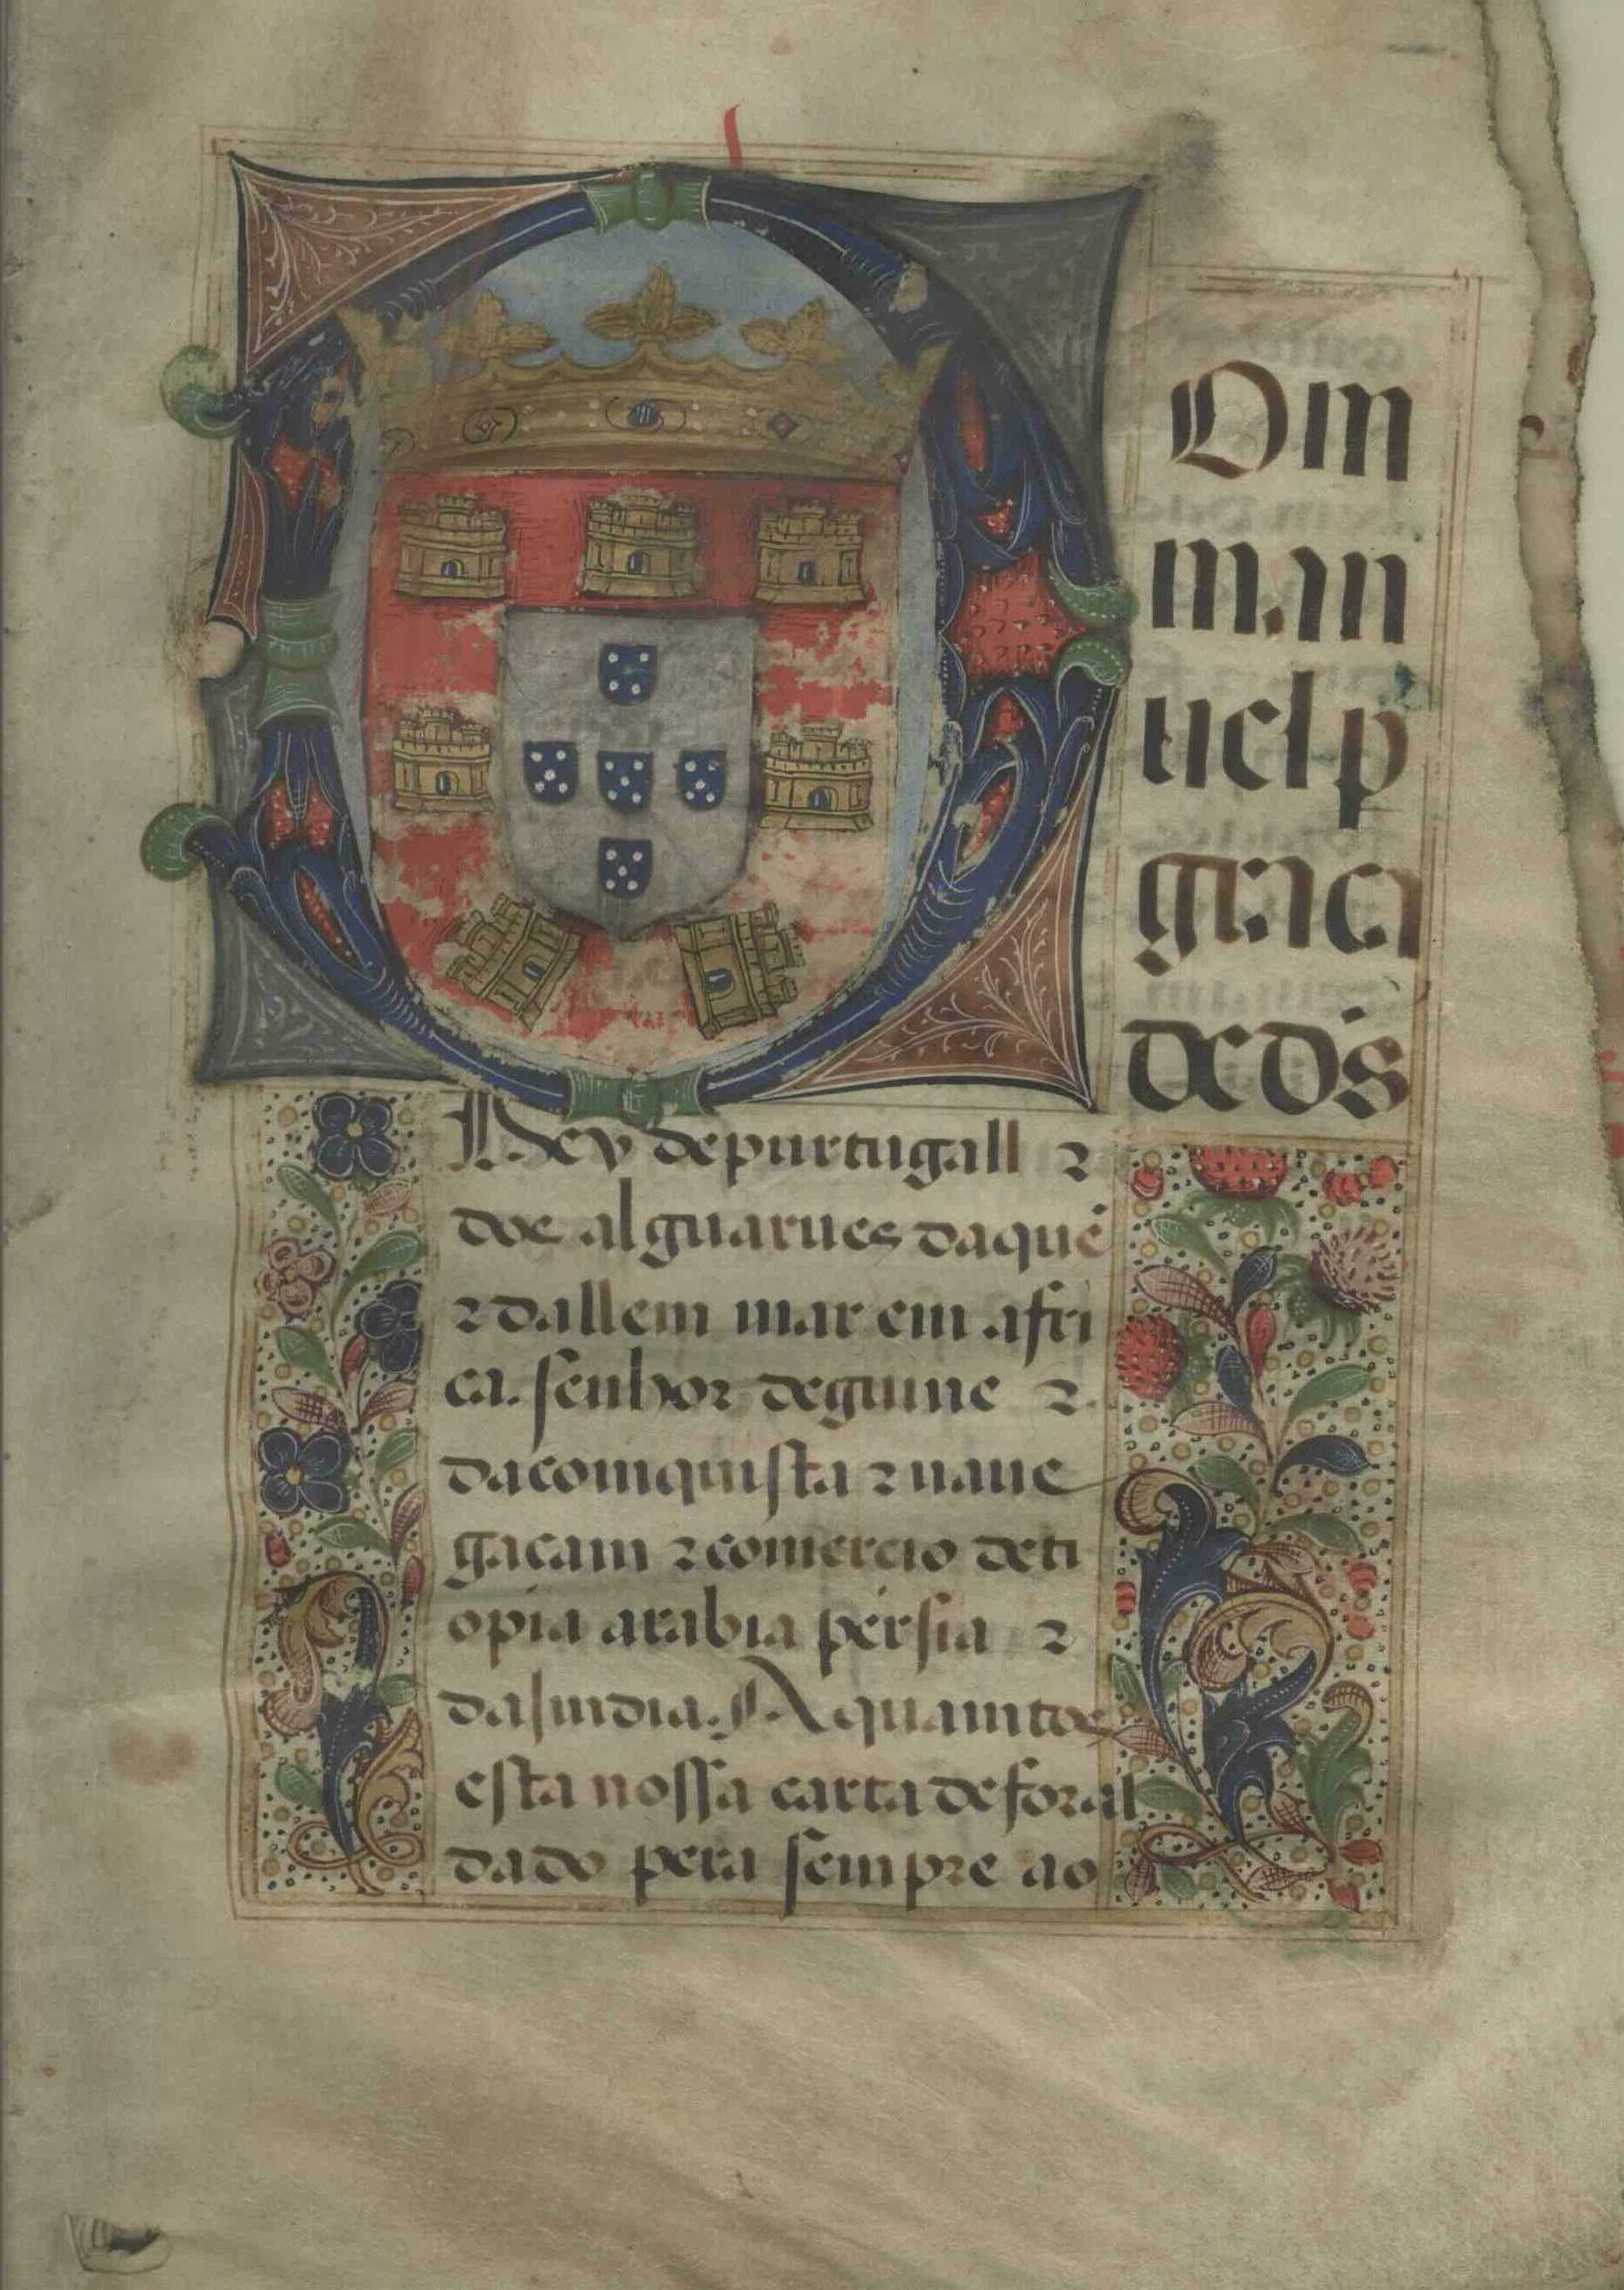 Om
man
uel p
graca
de d's
Rey de purtugall ⁊
dos alguarues daquẽ
⁊ dallem mar em afri
ca. senhor de guine ⁊
da comquista ⁊ naue
gaçam ⁊ comercio deti
opia arabia persia ⁊
da india. A quamtos
esta nossa carta de foral
dado pera sempre ao